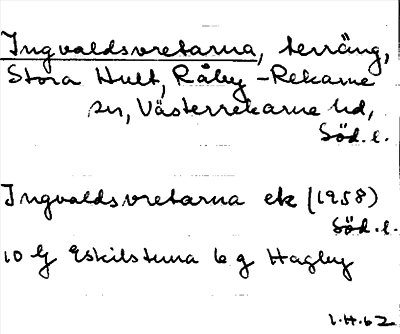 Ingvaldsvretarna, terräng,
Stora Hult, Råby-Rekarne
sn, Västerrekarne hd,
Söd.l.
Ingvaldsvretarna ek (1958)
Söd.l.
10 G Eskilstuna 6 g Hagby
1.H.62